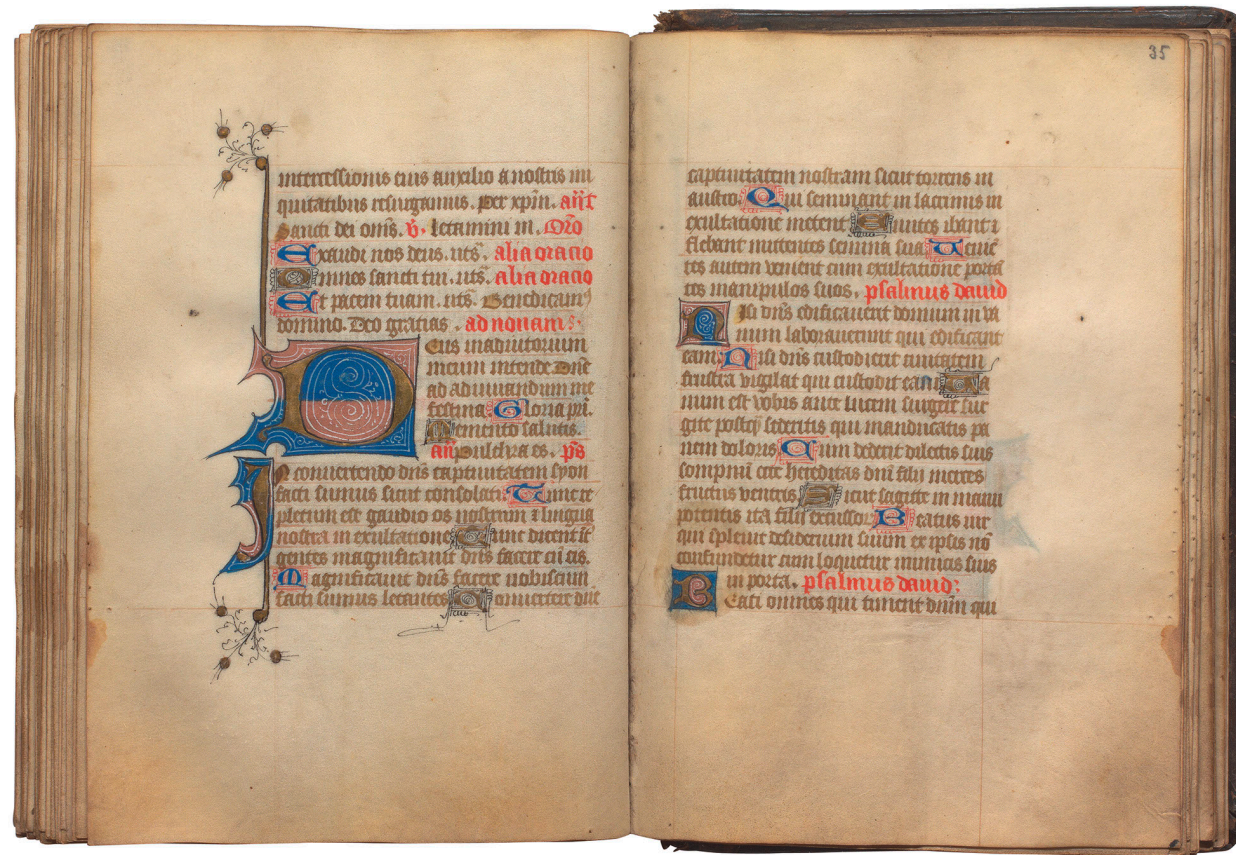 intercessionis eius auxilio a nostris ini
quitatibus resurgamus. Per xpm̄. an̄t
Sancti dei om̄s. v̄. letamini in. Or̄o
Exaudi nos deus. ut s̄. alia oracio
Omnes sancti tui. ut s̄. alia oracio
Et pacem tuam. ut s̄. Benedicam⁹
domino. Deo gratias. ad nonam.
Deus in adiutorium
meum intende Dn̄e
ad adiuuandum me
festina Gloria pr̄i.
Memento salutis.
an̄ Pulchra es. ps̄
In conuertendo dn̄s captiuitatem syon
facti sumus sicut consolati Tunc re
pletum est gaudio os nostrum ⁊ lingua
nostra in exultatione Tunc dicent īt̄
gentes magnificauit dn̄s facere cū eis.
Magnificauit dn̄s facere nobiscum
facti sumus letantes Conuertere dn̄e
35
captiuitatem nostram sicut torrens in
austro. Qui seminant in lacrimis in
exultatione metent Euntes ibant ⁊
flebant mittentes semina sua Uenien̄
tes autem venient cum exultatione portā
tes manipulos suos. psalmus dauid
Nisi dn̄s edificauerit domum in va
num laborauerunt qui edificant
eam Nisi dn̄s custodierit ciuitatem
frustra vigilat qui custodit eam Va
num est vobis ante lucem surgere sur
gite postq̄ sederitis qui manducatis pa
nem doloris Cum dederit dilectis suis
sompnū ecce hereditas dn̄i filij merces
fructus ventris Sicut sagitte in manu
potentis ita filii excussor̄ Beatus uir
qui īpleuit desiderium suum ex ipsis nō
confundetur cum loquetur inimicis suis
in porta. psalmus dauid:
Beati omnes qui timent dn̄m qui